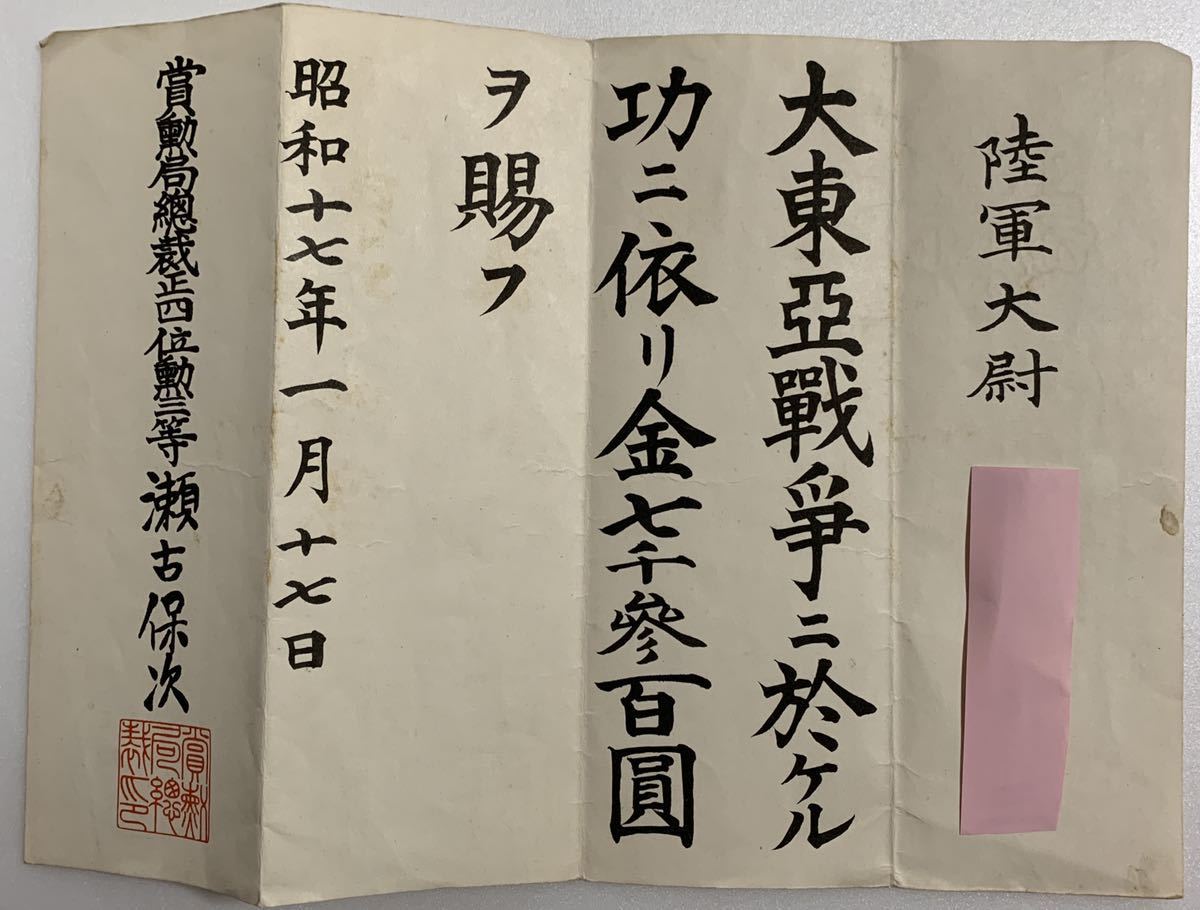 陸軍大尉
大東亞戰爭ニ於ケル
功ニ依リ金七千參百圓
ヲ賜フ
昭和十七年一月十七日
賞勲局總裁正四位勲三等瀬古保次
賞勲局總裁印